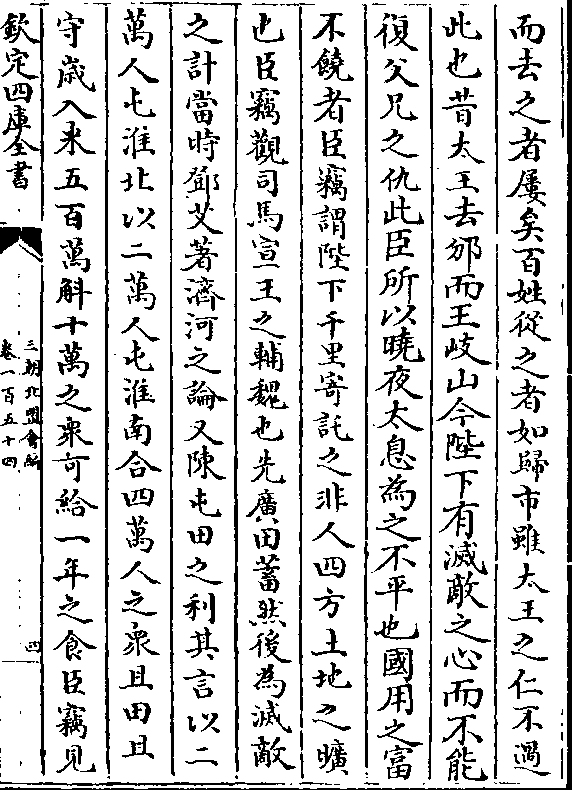 而去之者屢矣百姓從之者如歸市雖太王之仁不過
此也昔太王去邠而王岐山今陛下有滅敵之心而不能
復父兄之仇此臣所以曉夜太息為之不平也國用之富
不饒者臣竊謂陛下千里寄託之非人四方土地之曠
也臣竊觀司馬宣王之輔魏也先廣田蓄然後為滅敵
之計當時鄧艾著濟河之論又陳屯田之利其言以二
萬人屯淮北以二萬人屯淮南合四萬人之衆且田且
守歲入米五百萬斛十萬之衆可給一年之食臣竊見
欽定四庫全書
三朝北盟會編
卷一百五十四
四